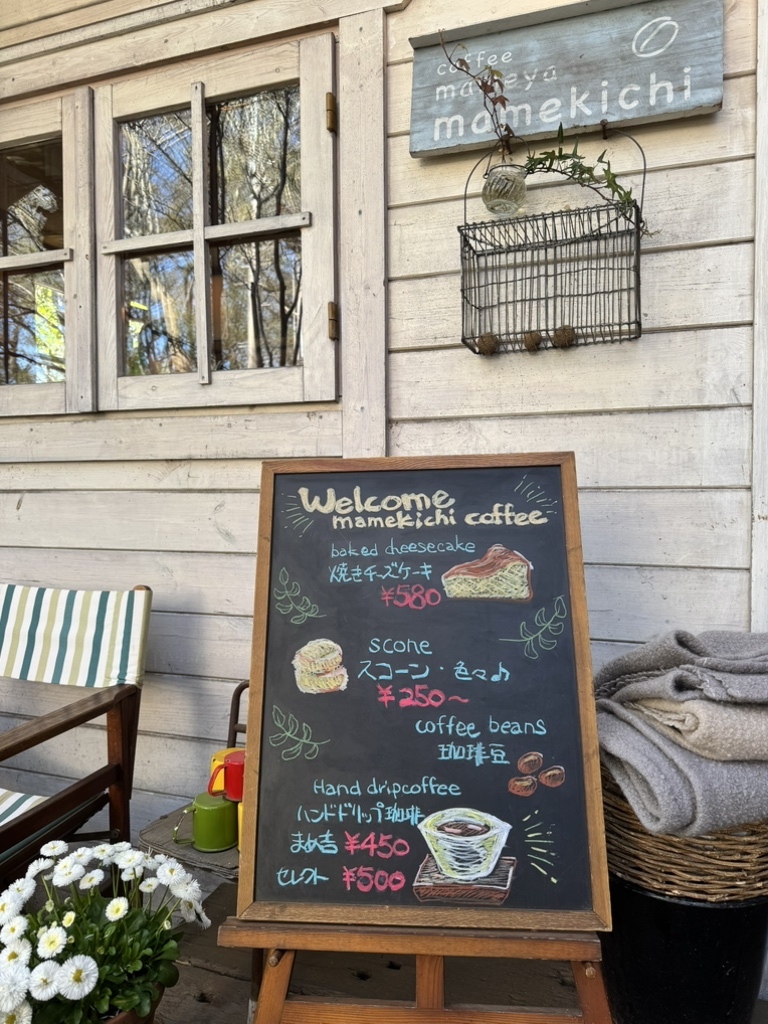 coffee
mameya
mamekichi
Welcome
mamekichi coffee
baked cheesecake
焼きチーズケーキ
¥580
scone
スコーン・色々♪
¥250～
coffee beans
珈琲豆
Hand dripcoffee
ハンドドリップ珈琲
まめ吉 ¥450
セレクト ¥500